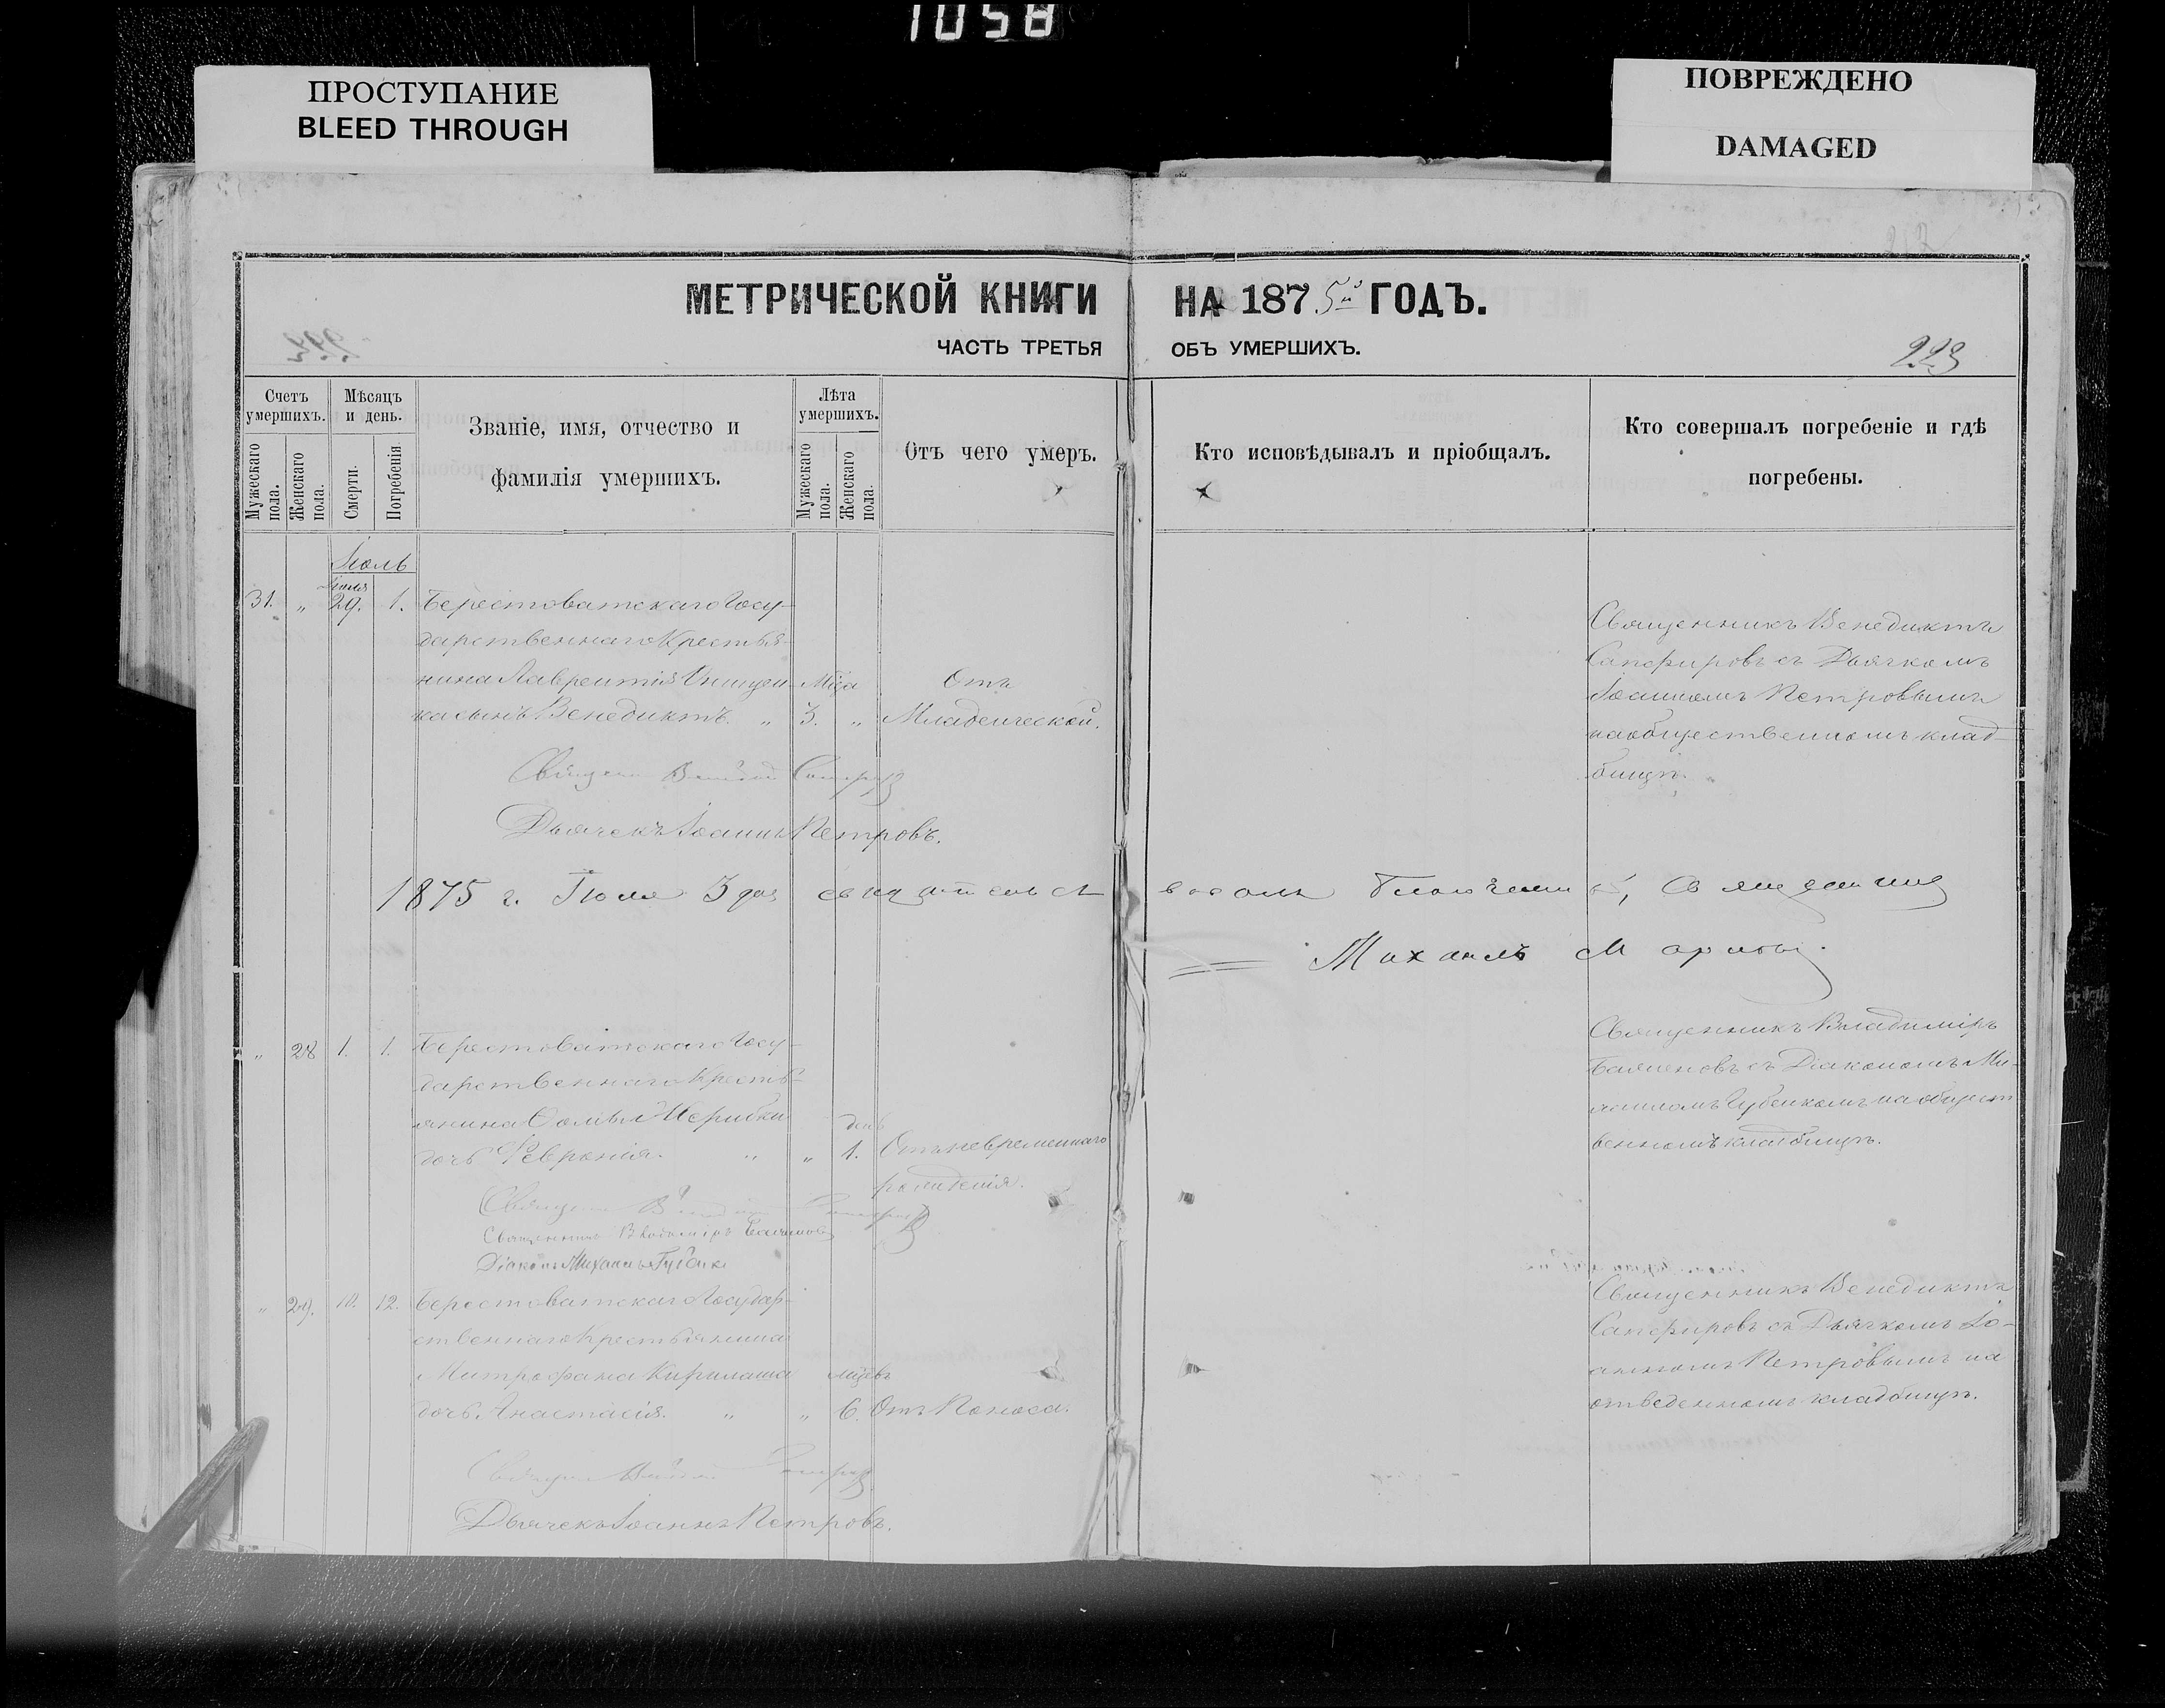 1058
ПРОСТУПАНИЕ
BLEED THROUGH
ПОВРЕЖДЕНО
DAMAGED
МЕТРИЧЕСКОЙ КНИГИ НА 1875й ГОДЪ.
ЧАСТЬ ТРЕТЬЯ ОБЪ УМЕРШИХЪ.
223
Счетъ умершихъ.
Мужескаго пола.
Женскаго пола.
Мѣсяцъ и день.
Смерти.
Погребенія
Званіе, имя, отчество и
фамилія умершихъ.
Лѣта умершихъ.
Мужескаго пола.
Женскаго пола.
Отъ чего умеръ.
Кто исповѣдывалъ и пріобщалъ.
Кто совершалъ погребеніе и гдѣ
погребены.
Іюль
Іюня
31. „ 29. 1. Берестоватскаго Госу-
дарственнаго Крестья-
нина Лаврентія Онищен- Мѣца Отъ
ка сынъ Венедиктъ. „ 3. „ Младенческой.
Священникъ Венедиктъ
Сапфировъ съ Дьячкомъ
Іоанномъ Петровымъ
на общественномъ клад-
бищѣ.
Дьячекъ Іоаннъ Петровъ.
1875 г. Іюля 3 дня свидѣтельствовалъ Священникъ
Михаилъ
„ 28 1. 1. Берестоватскаго Госу-
дарственнаго Кресть-
янина Ѳомы
день
дочь Феврония. „ „ 1. Отъ невременнаго
рожденія.
Священникъ Владиміръ
Баляновъ съ Діакономъ Ми-
хаиломъ Губенкомъ на общест
венномъ кладбищѣ.
Священникъ Владиміръ
Діаконъ Михаилъ Губенко
„ 29. 11. 12. Берестоватскаго Государ-
ственнаго Крестьянина
Митрофана Кирилаша мѣцевъ
дочь Анастасія. „ „ 6. Отъ Поноса.
Священникъ Венедиктъ
Сапфировъ съ Дьячкомъ Іо-
анномъ Петровымъ на
отведенномъ кладбищѣ.
Дьячекъ Іоаннъ Петровъ.